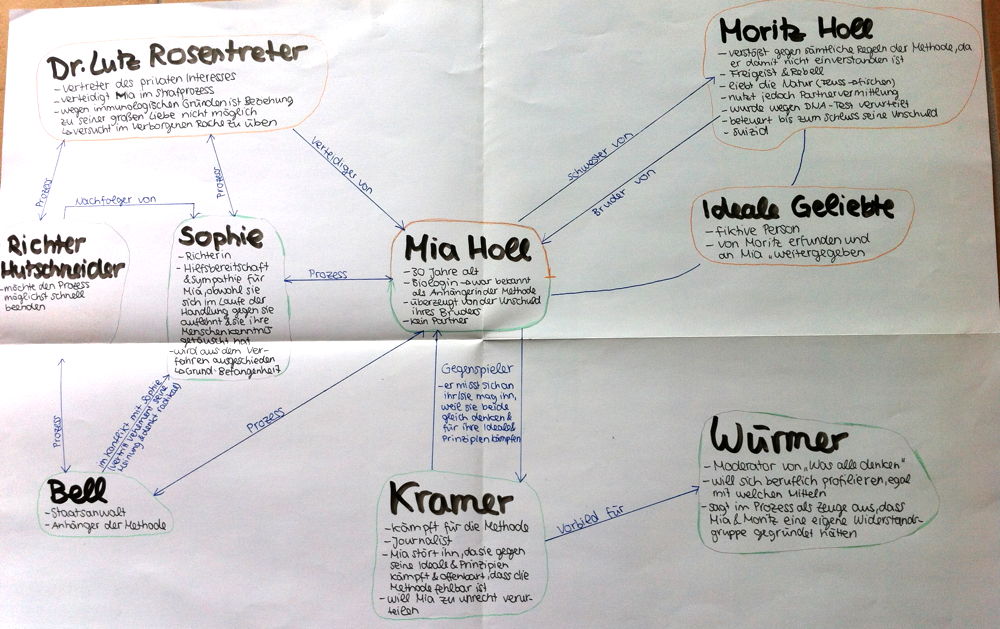 Dr. Lutz Rosentreter
- vertreter des privaten Interesses
- verteidigt Mia im Strafprozess
- wegen immunologischen Gründen ist Beziehung
zu seiner großen Liebe nicht möglich
↳ versucht im Verborgenen Rache zu üben
Moritz Holl
- verstößt gegen sämtliche Regeln der Methode, da
er damit nicht einverstanden ist
- Freigeist & Rebell
- liebt die Natur (Fluss → fischen)
- nutzt jedoch Partnervermittlung
- wurde wegen DNA-Test verurteilt
- beteuert bis zum Schluss seine Unschuld
- suizid
Prozess
Prozess
Verteidiger von
Schwester von
Bruder von
Nachfolger von
Richter
Hutschneider
- möchte den Prozess
möglichst schnell
beenden
Sophie
- Richterin
- Hilfsbereitschaft
& Sympathie für
Mia, obwohl sie
sich im Laufe der
Handlung gegen sie
auflehnt & sie ihre
Menschenkenntnis
getäuscht hat
- wird aus dem Ver-
fahren ausgeschieden
↳ Grund: Befangenheit
Prozess
Mia Holl
- 30 Jahre alt
- Biologin → war bekannt
als Anhängerin der Methode
- überzeugt von der Unschuld
ihres Bruders
- kein Partner
Ideale Geliebte
- fiktive Person
- von Moritz erfunden und
an Mia „weitergegeben
Prozess
im Konflikt mit Sophie
(vertritt vehement seine
Meinung & denkt radikal)
Prozess
Gegenspieler
- er misst sich an
ihr/sie mag ihn,
weil sie beide
gleich denken &
für ihre Ideale &
Prinzipien kämpfen
Bell
- Staatsanwalt
- Anhänger der Methode
Kramer
- kämpft für die Methode
- Journalist
- Mia stört ihn, da sie gegen
seine Ideale & Prinzipien
kämpft & offenbart, dass die
Methode fehlbar ist
- will Mia zu unrecht verur-
teilen
Vorbild für
Würmer
- Moderator von „Was alle denken"
- will sich beruflich profilieren, egal
mit welchen Mitteln
- sagt im Prozess als Zeuge aus, dass
Mia & Moritz eine eigene Widerstands-
gruppe gegründet hätten